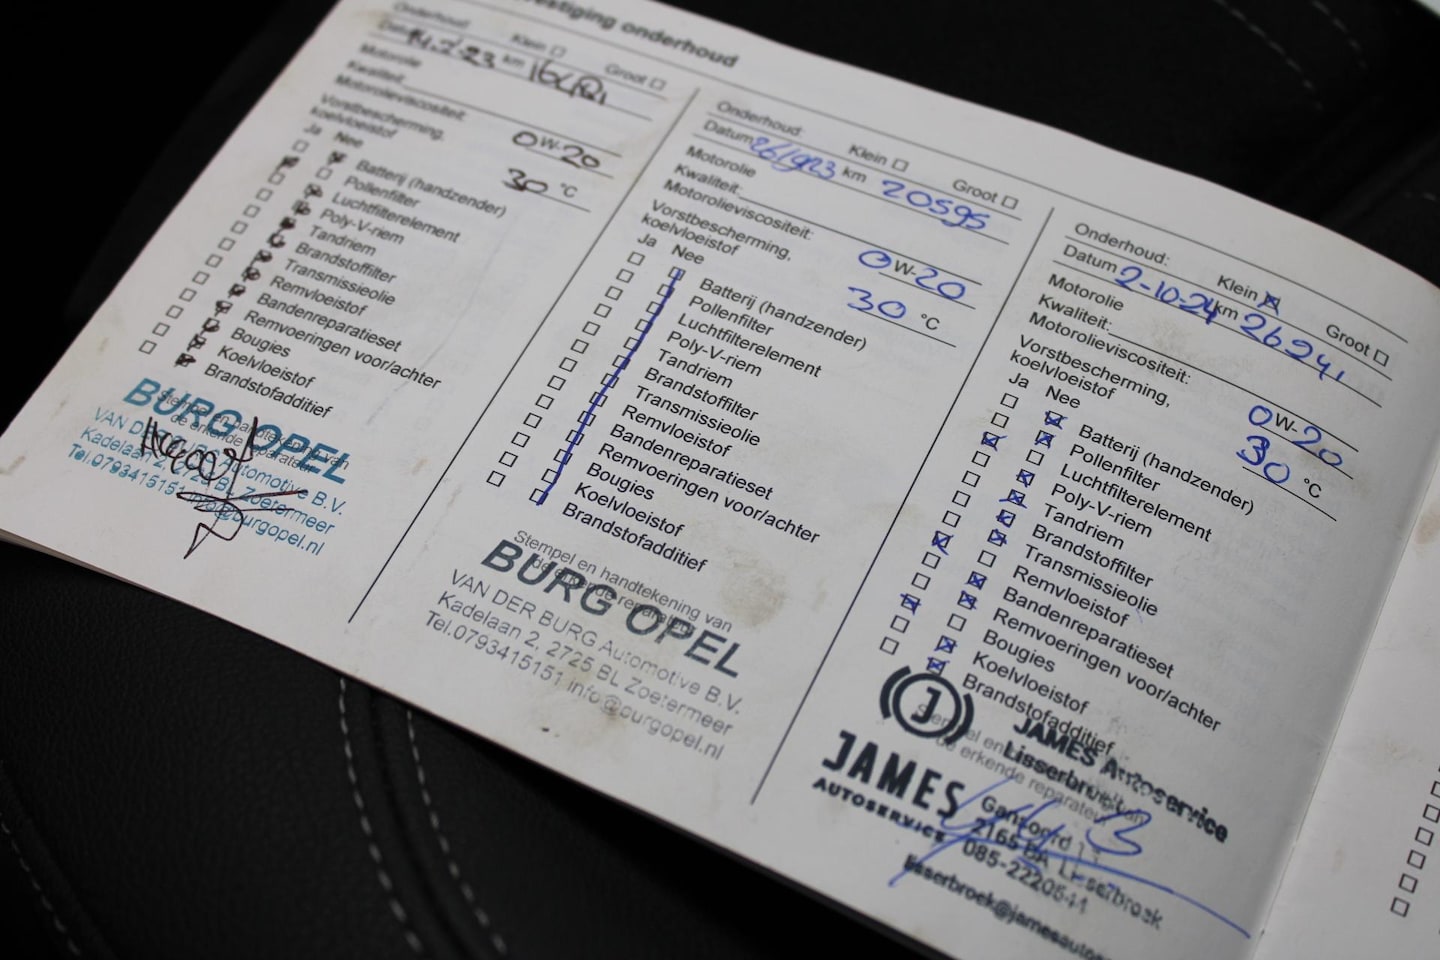 estiging onderhoud
Onderhoud: Klein Groot
Datum km
Motorolie
Kwaliteit:
Motorolieviscositeit: 0 W- 20
Vorstbescherming,
koelvloeistof 30 °C
Ja Nee
Batterij (handzender)
Pollenfilter
Luchtfilterelement
Poly-V-riem
Tandriem
Brandstoffilter
Transmissieolie
Remvloeistof
Bandenreparatieset
Remvoeringen voor/achter
Bougies
Koelvloeistof
Brandstofadditief
Stempel en handtekening van
de erkende reparateur
BURG OPEL
VAN DER BURG Automotive B.V.
Kadelaan 2, 2725 BL Zoetermeer
Tel.0793415151 info@burgopel.nl
Onderhoud: Klein Groot
Datum 26/9/23 km 20595
Motorolie
Kwaliteit:
Motorolieviscositeit: 0 W- 20
Vorstbescherming,
koelvloeistof 30 °C
Ja Nee
Batterij (handzender)
Pollenfilter
Luchtfilterelement
Poly-V-riem
Tandriem
Brandstoffilter
Transmissieolie
Remvloeistof
Bandenreparatieset
Remvoeringen voor/achter
Bougies
Koelvloeistof
Brandstofadditief
Stempel en handtekening van
de erkende reparateur
BURG OPEL
VAN DER BURG Automotive B.V.
Kadelaan 2, 2725 BL Zoetermeer
Tel.0793415151 info@burgopel.nl
Onderhoud: Klein Groot
Datum 2-10-24 km 26241
Motorolie
Kwaliteit:
Motorolieviscositeit: 0 W- 20
Vorstbescherming,
koelvloeistof 30 °C
Ja Nee
Batterij (handzender)
Pollenfilter
Luchtfilterelement
Poly-V-riem
Tandriem
Brandstoffilter
Transmissieolie
Remvloeistof
Bandenreparatieset
Remvoeringen voor/achter
Bougies
Koelvloeistof
Brandstofadditief
Stempel en handtekening van
de erkende reparateur
J
JAMES
AUTOSERVICE
JAMES Autoservice
Lisserbroek
Gansoord
2165 BA Lisserbroek
085-2220541
lisserbroek@jamesautos